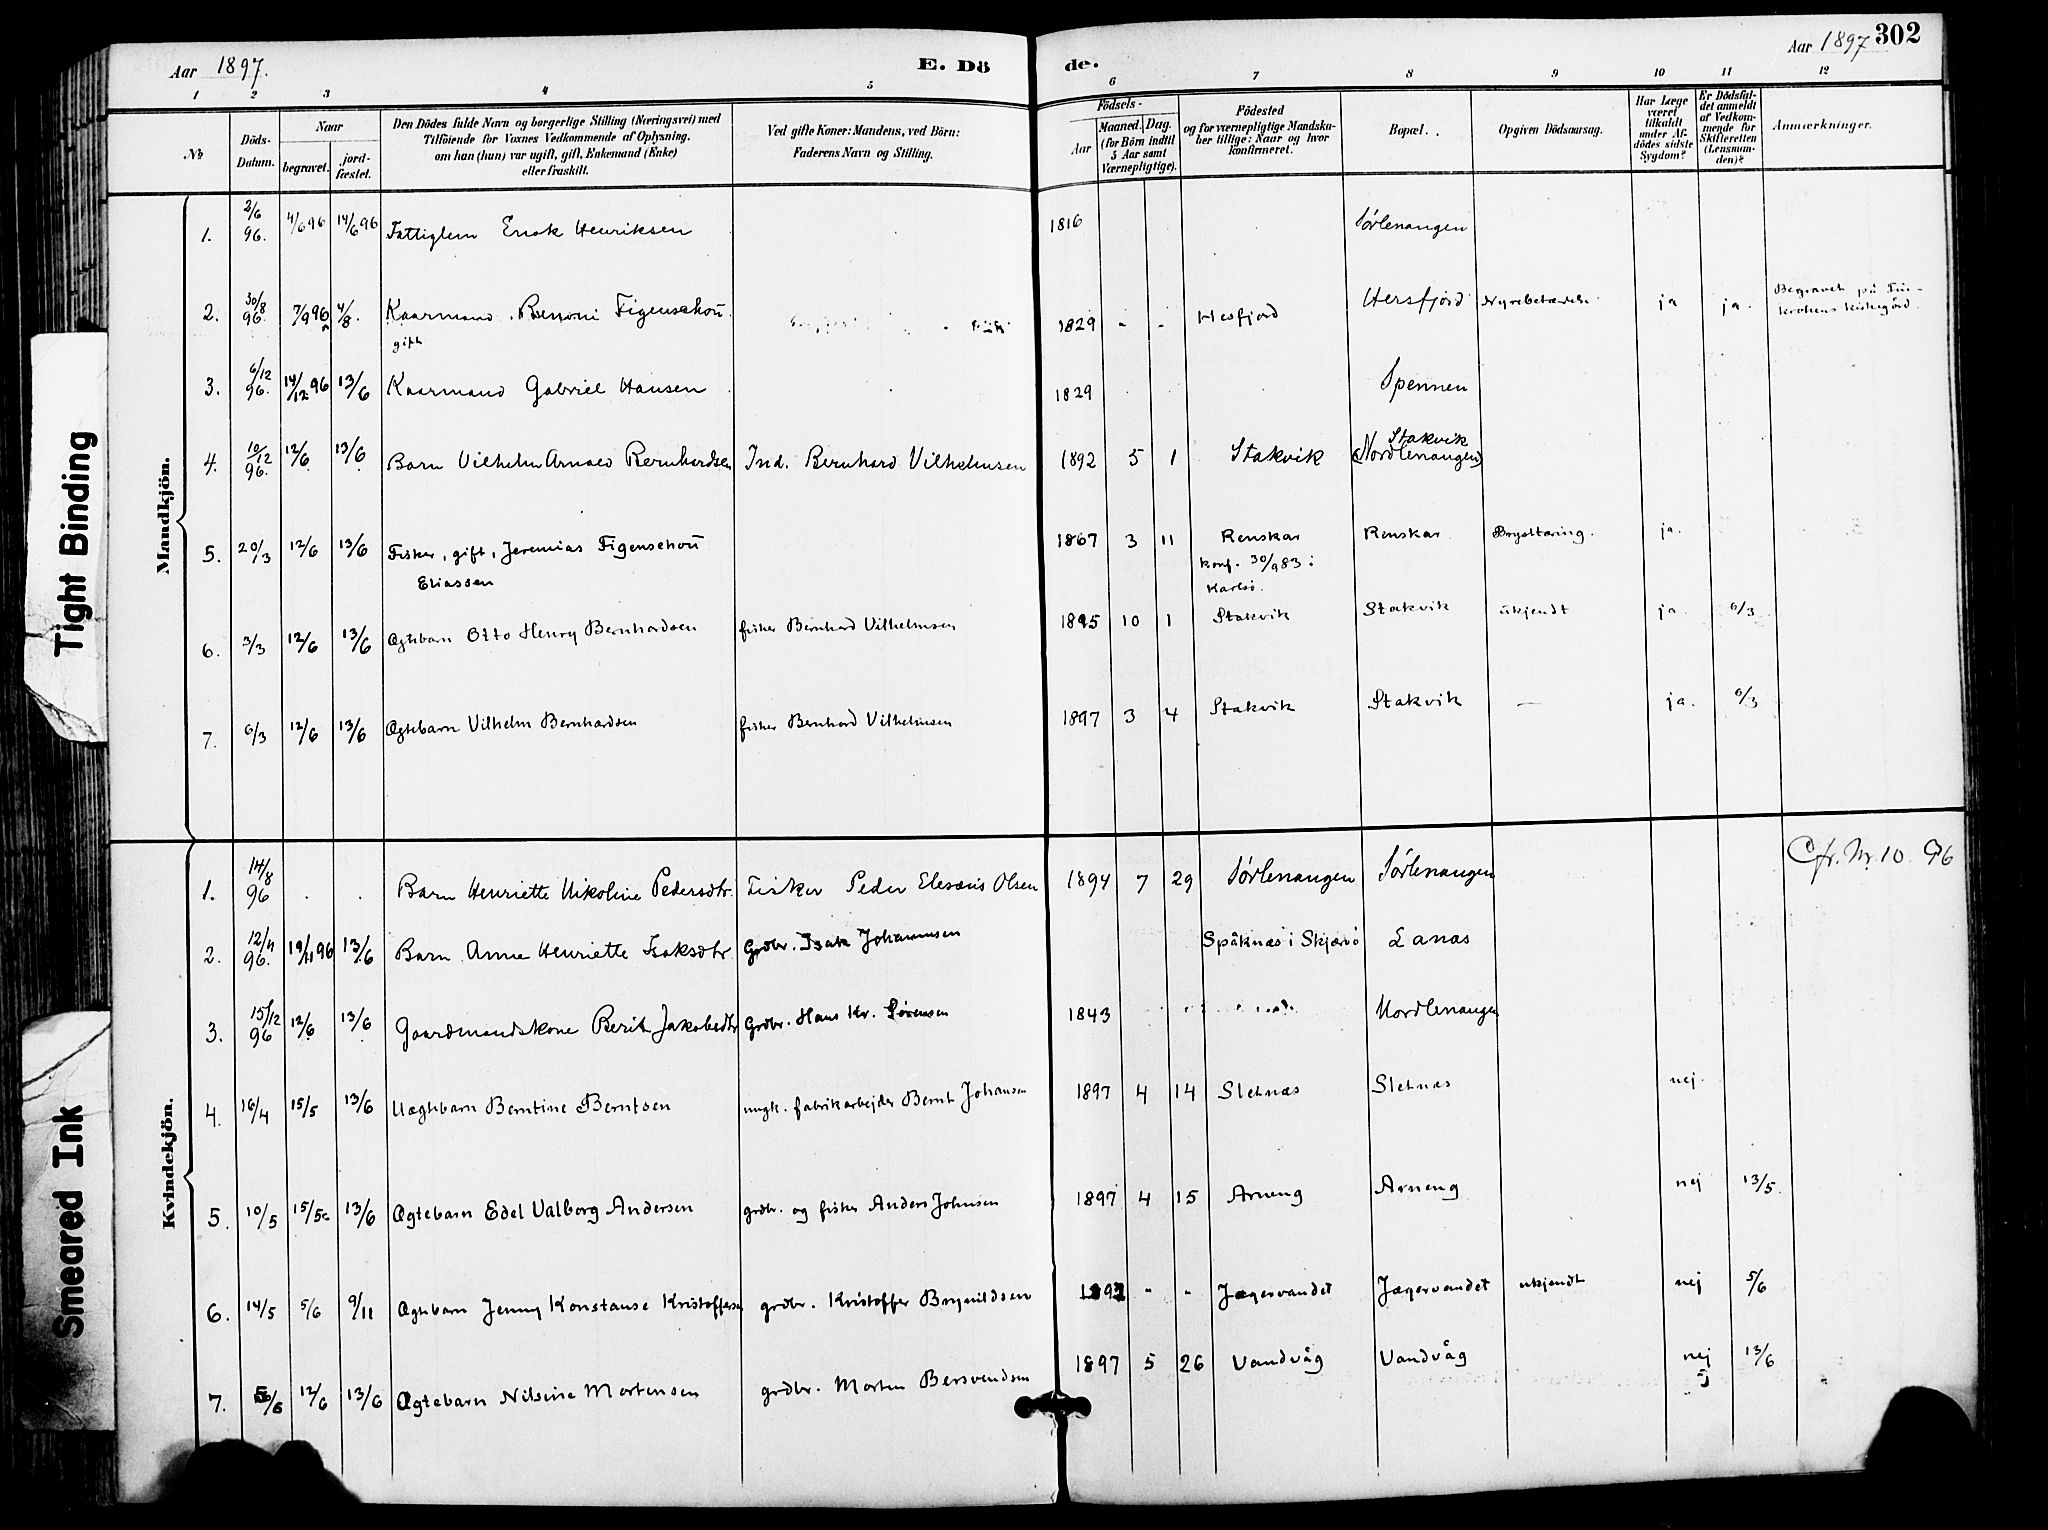 Aar 1897.
E. Dö
de.
Aar 1897 302
1 2 3 4 5 6 7 8 9 10 11 12
No
Döds-Datum.
Naar
begravet.
jord-fæstet.
Den Dödes fulde Navn og borgerlige Stilling (Næringsvei) med
Tilföiende for Voxnes Vedkommende af Oplysning,
om han (hun) var ugift, gift, Enkemand (Enke)
eller fraskilt.
Ved gifte Koner: Mandens, ved Börn:
Faderens Navn og Stilling.
Födsels-
Aar
Maaned. Dag.
(for Börn indtil
5 Aar samt
Værnepligtige).
Födested
og for værnepligtige Mandska-
ber tillige: Naar og hvor
konfirmeret.
Bopæl.
Opgiven Dödsaarsag.
Har Læge
været
tilkaldt
under Af-
dödes sidste
Sygdom?
Er Dödsfal-
det anmeldt
af Vedkom-
mende for
Skifteretten
(Lensman-
den)?
Anmærkninger.
Tight Binding
Smeared Ink
Mandkjön.
1. 2/6 96. 4/6 96 14/6 96 Fattiglem Enok Henriksen 1816 Sørlenangen
2. 30/8 96. 7/9 96 4/8. Kaarmand, Benoni Figenschou 1829 - - Hesfjord Hersfjord Nyrebetændelse ja ja. Begravet på Fin-
gift
krokens kirkegård.
3. 6/12 96. 14/12 96 13/6 Kaarmand Gabriel Hansen 1829 Spennen
4. 10/12 96. 12/6. 13/6 Barn Vilhelm Arnold Bernhardsen Ind. Bernhard Vilhelmsen 1892 5 1 Stakvik Stakvik
(Nordlenangen)
5. 20/3 12/6 13/6 Fisker, gift, Jeremias Figenschou 1867 3 11 Renskar Renskar Brysttæring. ja.
Eliassen
konf. 30/9 83 i
Karlsö.
6. 3/3 12/6 13/6 Ægtebarn Otto Henry Bernhardsen fisker Bernhard Vilhelmsen 1895 10 1 Stakvik Stakvik ukjendt ja. 6/3
7. 6/3 12/6 13/6 Ægtebarn Vilhelm Bernhardsen fisker Bernhard Vilhelmsen 1897 3 4 Stakvik Stakvik — ja. 6/3
Kvindekjön.
1. 14/8 96 Barn Henriette Nikoline Pedersdtr. Fisker Peder Elesæus Olsen 1894 7 29 Sørlenangen Sørlenangen Cfr. Nr. 10. 96
2. 12/4 96. 19/4 96 13/6 Barn Anne Henriette Isaksdtr. Grdbr. Isak Johannesen Spåknæs i Skjærvö Lanæs
3. 15/12 96 12/6 13/6 Gaardmandskone Berit Jakobsdtr Grdbr. Hans Kr. Sørensen 1843 Nordlenangen
4. 16/4 15/5 13/6 Uægtebarn Berntine Berntsen ungk. fabrikarbejder Bernt Johansen 1897 4 14 Sletnæs Sletnæs nej.
5. 10/5 15/5 13/6 Ægtebarn Edel Valborg Andersen grdbr. og fisker Anders Johnsen 1897 4 15 Arneng Arneng nej 13/5.
6. 14/5 5/6 9/11 Ægtebarn Jenny Konstanse Kristoffersen grdbr. Kristoffer Brynildsen 1897 " " Jægervandet Jægervandet ukjendt nej 5/6
7. 12/6 13/6 Ægtebarn Nilsine Mortensen grdbr. Morten Bersvendsen 1897 5 26 Vandvåg Vandvåg nej 13/6